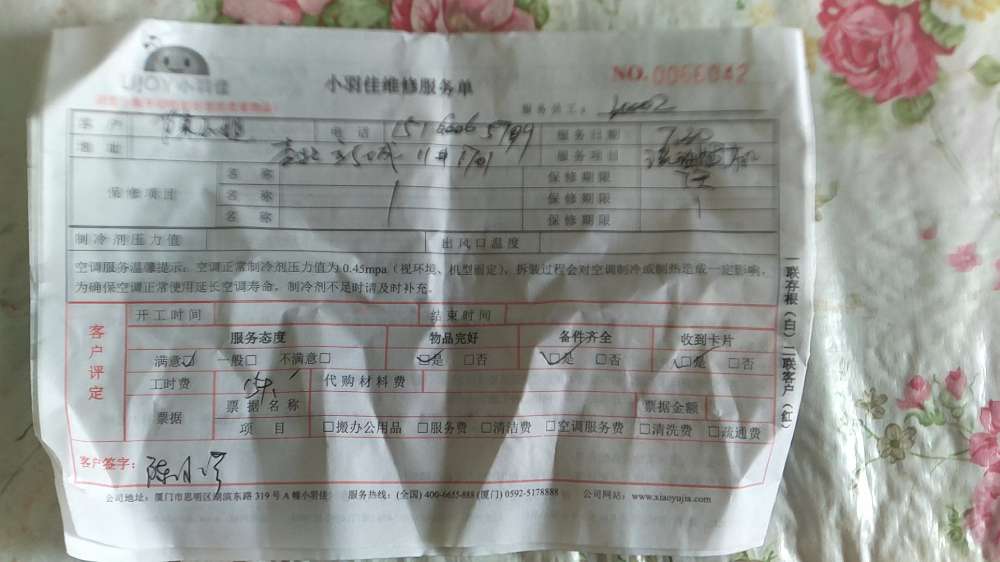 UJOY小羽佳
小羽佳维修服务单
NO.0066042
服务员工：
客户 电话 服务日期
地址 服务项目
保修项目 名称 保修期限
名称 保修期限
名称 保修期限
制冷剂压力值 出风口温度
空调服务温馨提示：空调正常制冷剂压力值为0.45mpa（视环境、机型而定），拆装过程会对空调制冷或制热造成一定影响，
为确保空调正常使用延长空调寿命，制冷剂不足时请及时补充。
一联存根（白）二联客户（红）
客户评定
开工时间 结束时间
服务态度 物品完好 备件齐全 收到卡片
满意☑ 一般□ 不满意□ ☑是 □否 ☑是 □否 ☑是 □否
工时费 代购材料费
票据 票据名称 票据金额
项目 □搬办公用品 □服务费 □清洁费 □空调服务费 □清洗费 □疏通费
客户签字：
公司地址：厦门市思明区湖滨东路319号A幢小羽佳 服务热线：(全国) 400-6655-888 (厦门) 0592-5178888 公司网站：www.xiaoyujia.com